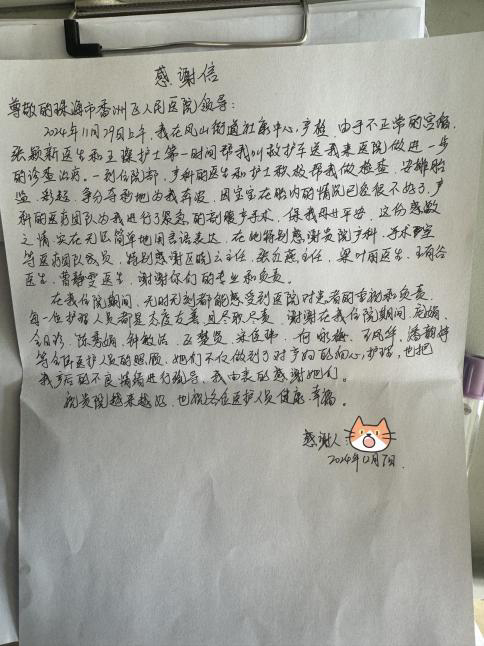 感谢信
尊敬的珠海市香洲区人民医院领导:
2024年11月29日上午,我在凤山街道社康中心产检,由于不正常的宫缩,
张颖新医生和王琛护士第一时间帮我叫救护车送我来医院做进一步
的诊查治疗。一到住院部,产科的医生和护士积极帮我做检查,安排胎
监、彩超,争分夺秒地为我奔波,因宝宝在胎内的情况已经很不好了,产
科的医疗团队为我进行了紧急的剖腹产手术,保我母女平安,这份感激
之情实在无法简单地用言语表达。在此特别感谢贵院产科、手术室
等医疗团队成员,特别感谢区主任、主任、梁叶丽医生、
医生、曾静雯医生,谢谢你们的专业和负责。
在我住院期间,无时无刻都能感受到医院对患者的重视和负责,
每一位护理人员都是态度友善且尽职尽责,谢谢在我住院期间
陈秀娟、
等全体医护人员的照顾,她们不仅做到了对产妇的细心护理,也把
我产后的不良情绪进行疏导,我由衷的感谢她们。
祝贵院越来越好,也祝各位医护人员健康、幸福。
感谢人:
2024年12月7日.